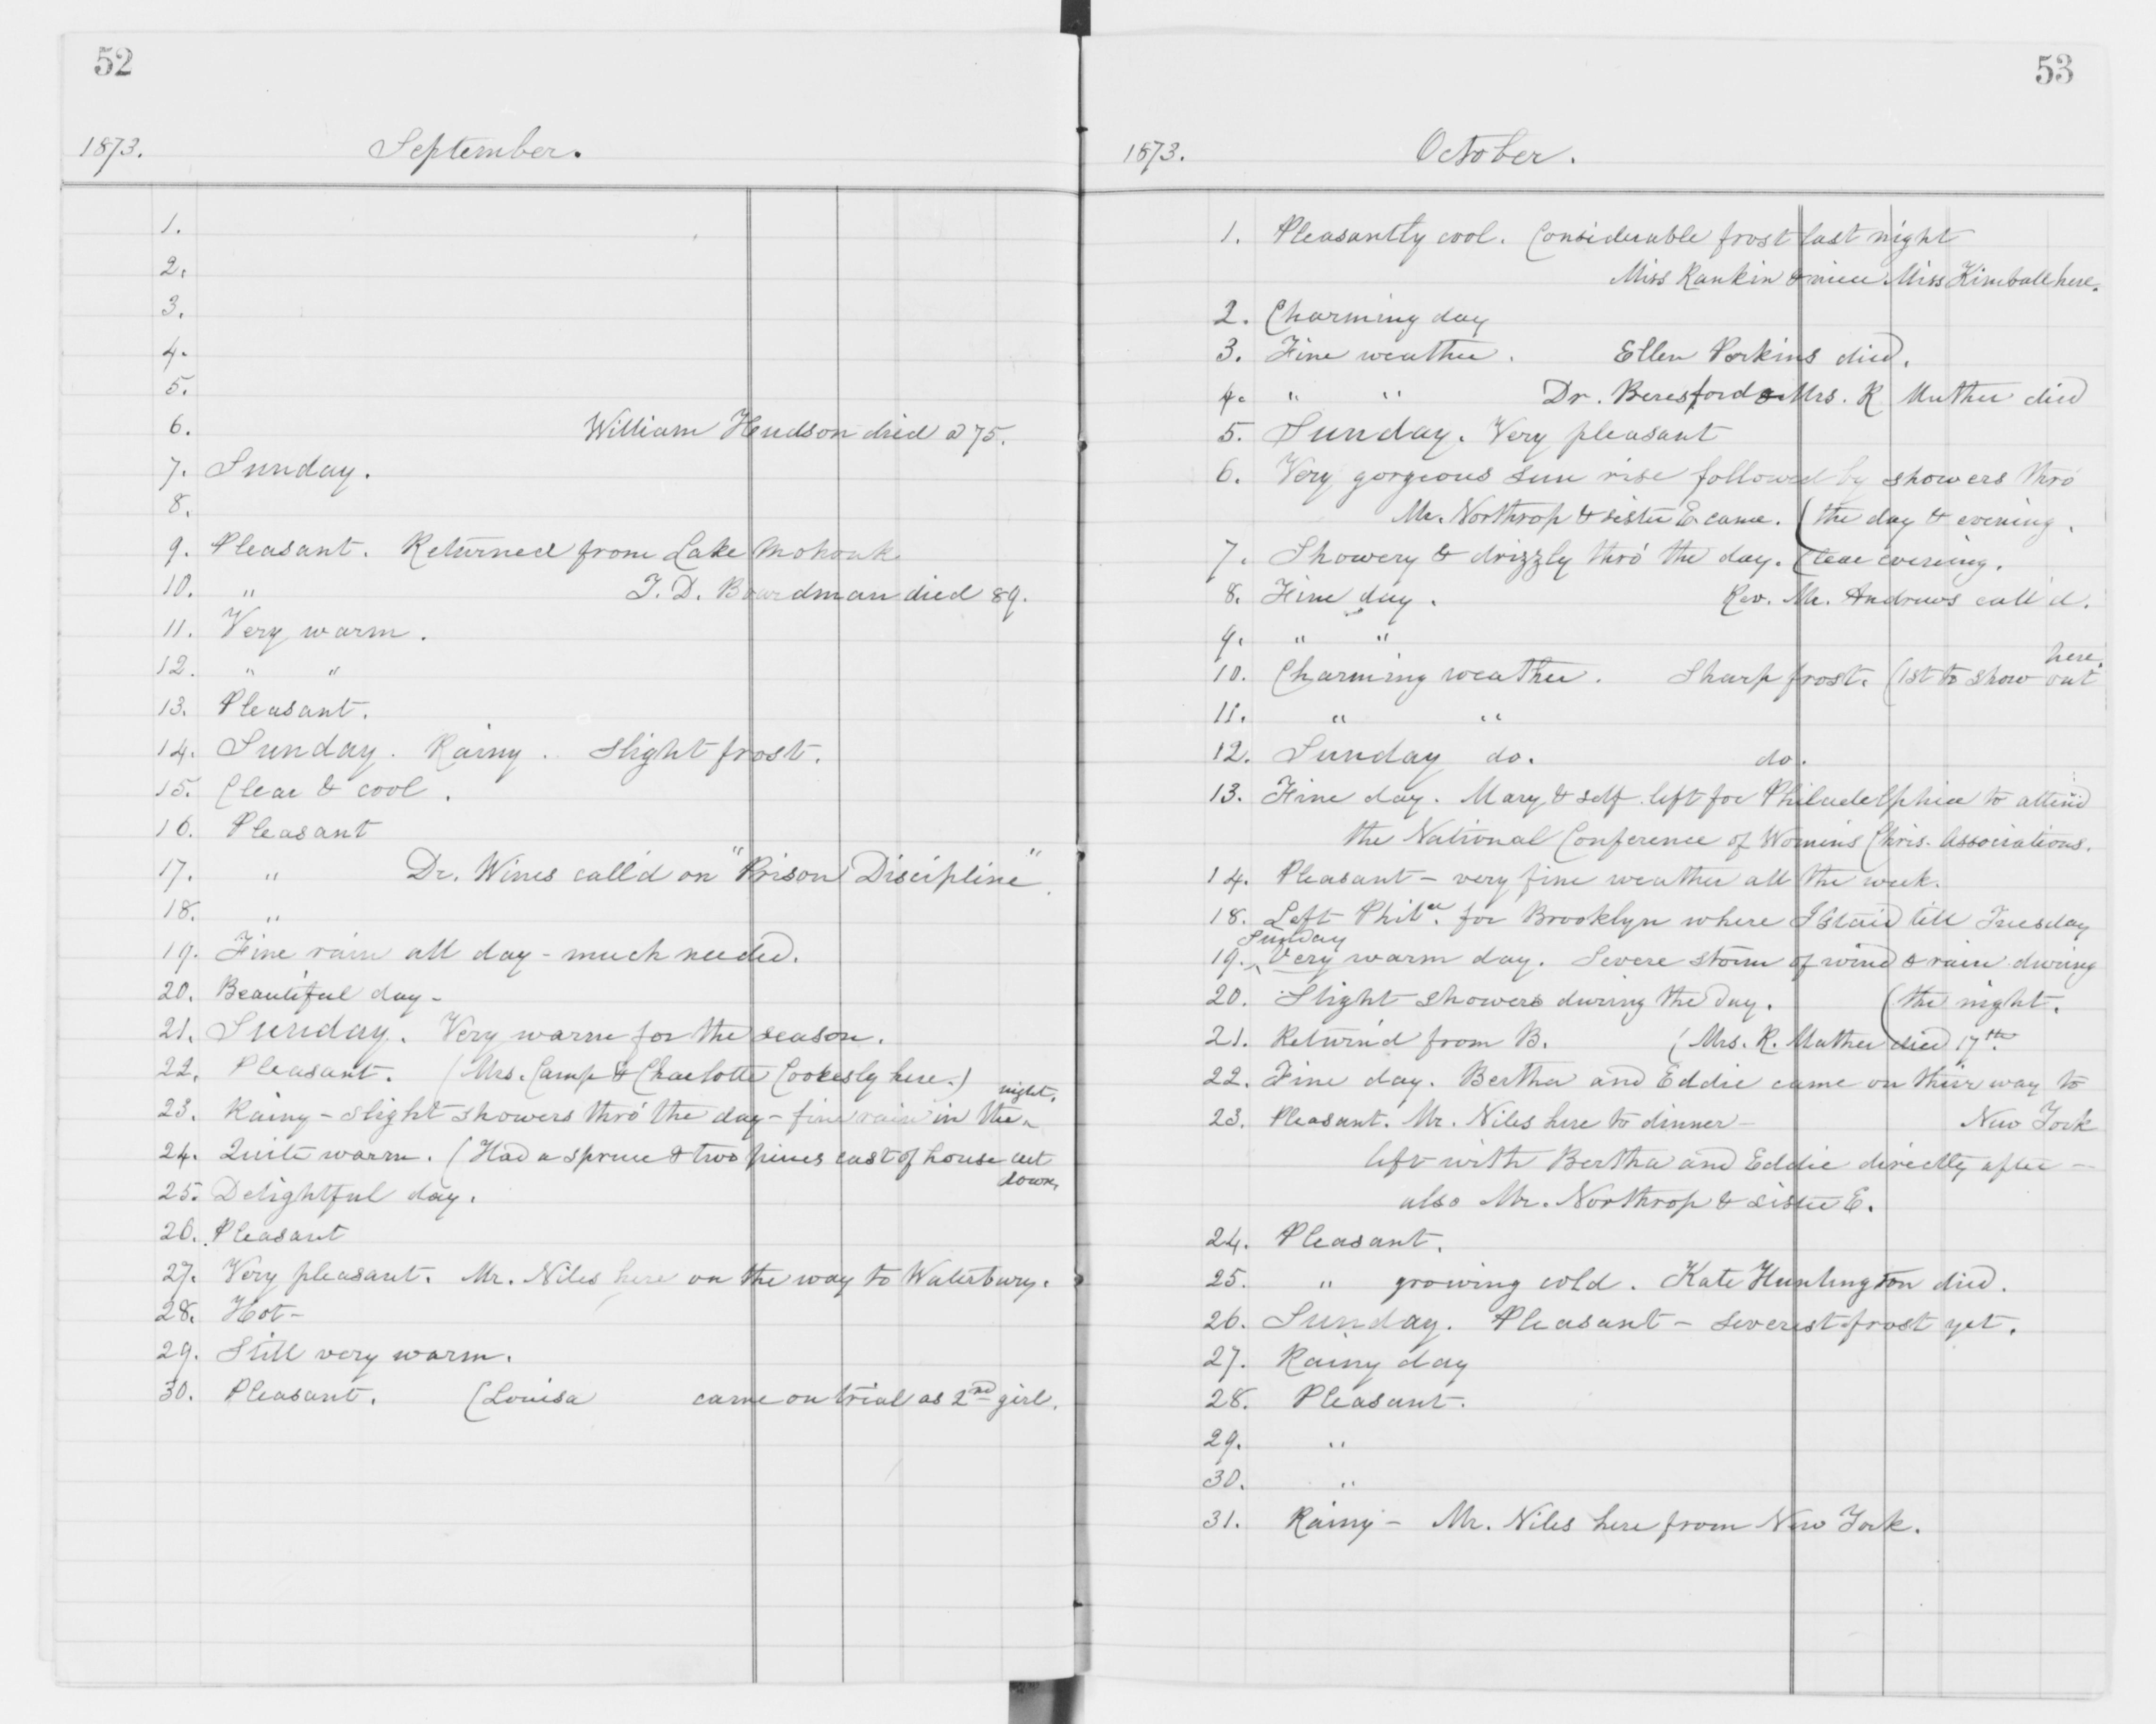 52
1873. September.
1.
2.
3.
4.
5.
6. William Hudson died a 75.
7. Sunday.
8.
9. Pleasant. Returned from Lake Mohonk
10. " T. D. Boardman died 89.
11. Very warm.
12. " "
13. Pleasant.
14. Sunday. Rainy. Slight frost.
15. Clear & cool.
16. Pleasant
17. " Dr. Wines call'd on "Prison Discipline".
18. "
19. Fine rain all day - much needed.
20. Beautiful day -
21. Sunday. Very warm for the season.
22. Pleasant. (Mrs. Camp & Charlotte Cookesly here.)
night.
23. Rainy - slight showers thro' the day - fine rain in the ^
24. Quite warm. (Had a spruce & two pines east of house cut
down.
25. Delightful day.
26. Pleasant
27. Very pleasant. Mr. Niles here on the way to Waterbury.
28. Hot -
29. Still very warm.
30. Pleasant. (Louisa came on trial as 2nd girl.
53
1873. October.
1. Pleasantly cool. Considerable frost last night
Miss Rankin & niece Miss Kimball here.
2. Charming day
3. Fine weather. Ellen Perkins died.
4. " " Dr. Beresford & Mrs. R Mather died
5. Sunday. Very pleasant
6. Very gorgeous sun rise followed by showers thro'
Mr. Northrop & sister E. came. (the day & evening.
7. Showery & drizzly thro' the day. Clear evening.
8. Fine day. Rev. Mr. Andrews call'd.
9. " "
here.
10. Charming weather. Sharp frost. (1st to show out
11. " "
12. Sunday do. do.
13. Fine day. Mary & self left for Philadelphia to attend
the National Conference of Women's Chris. Associations.
14. Pleasant - very fine weather all the week.
18. Left Phila. for Brooklyn where I staid till Tuesday
Sunday
19. ^ Very warm day. Severe storm of wind & rain during
20. Slight showers during the day. (the night.
21. Return'd from B. (Mrs. R. Mather died 17th.
22. Fine day. Bertha and Eddie came on their way to
23. Pleasant. Mr. Niles here to dinner - New York
left with Bertha and Eddie directly after -
also Mr. Northrop & sister E.
24. Pleasant.
25. " growing cold. Kate Huntington died.
26. Sunday. Pleasant - severest frost yet.
27. Rainy day
28. Pleasant.
29. "
30. "
31. Rainy - Mr. Niles here from New York.